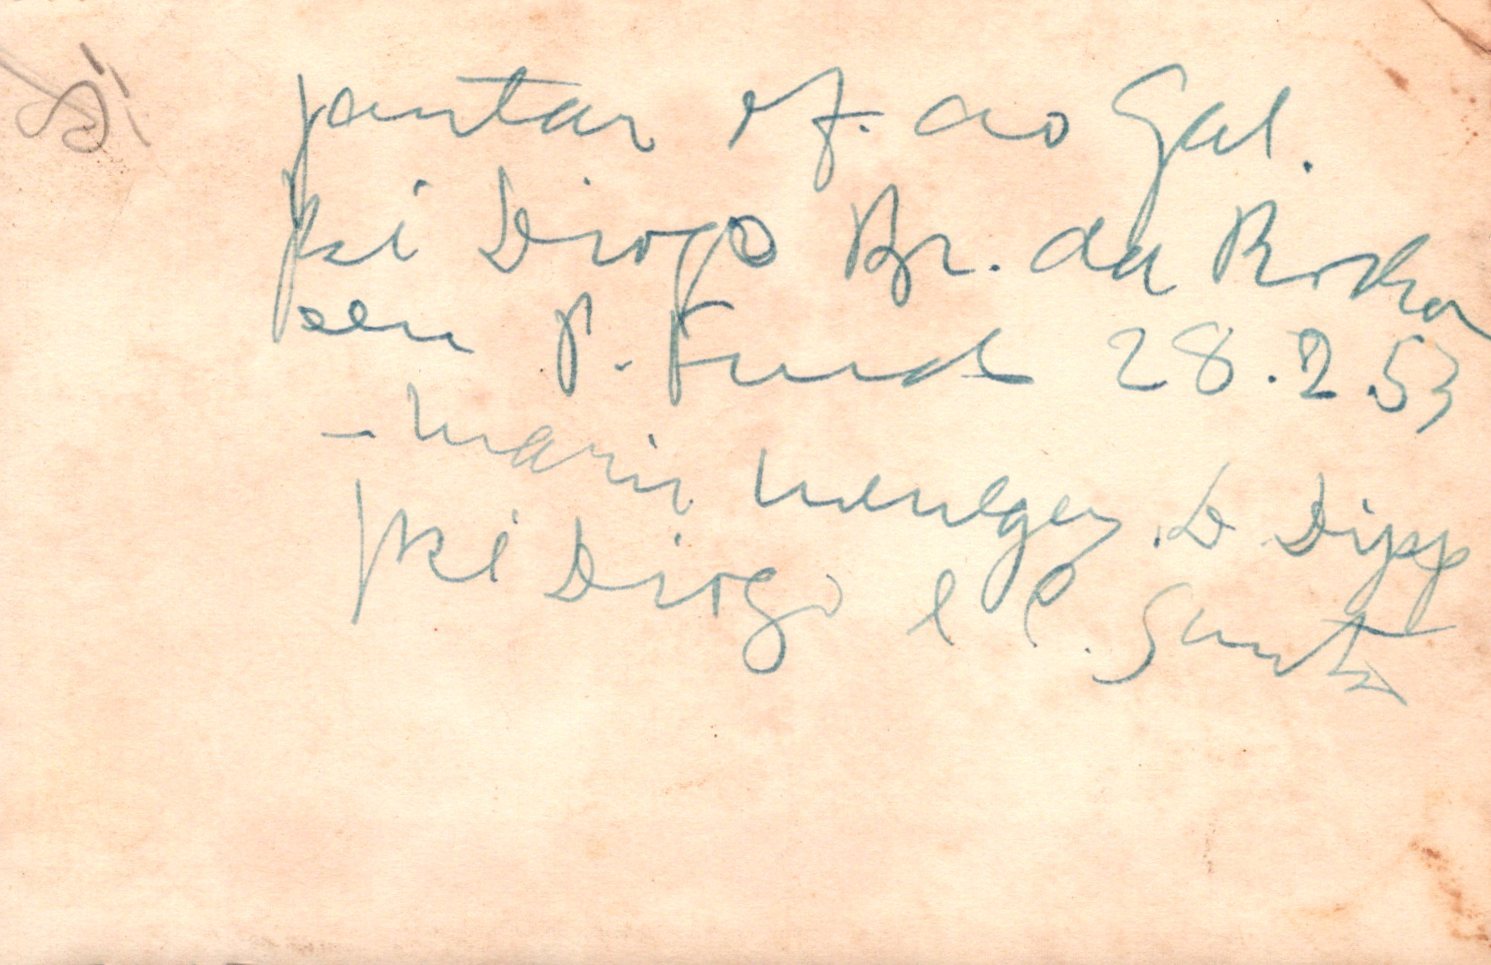 jantar of. ao Gal.
José Diogo Br. da Rocha
em P. Fundo 28.2.53
- Mario Menegaz. D. Dipp
José Diogo e C. Santos